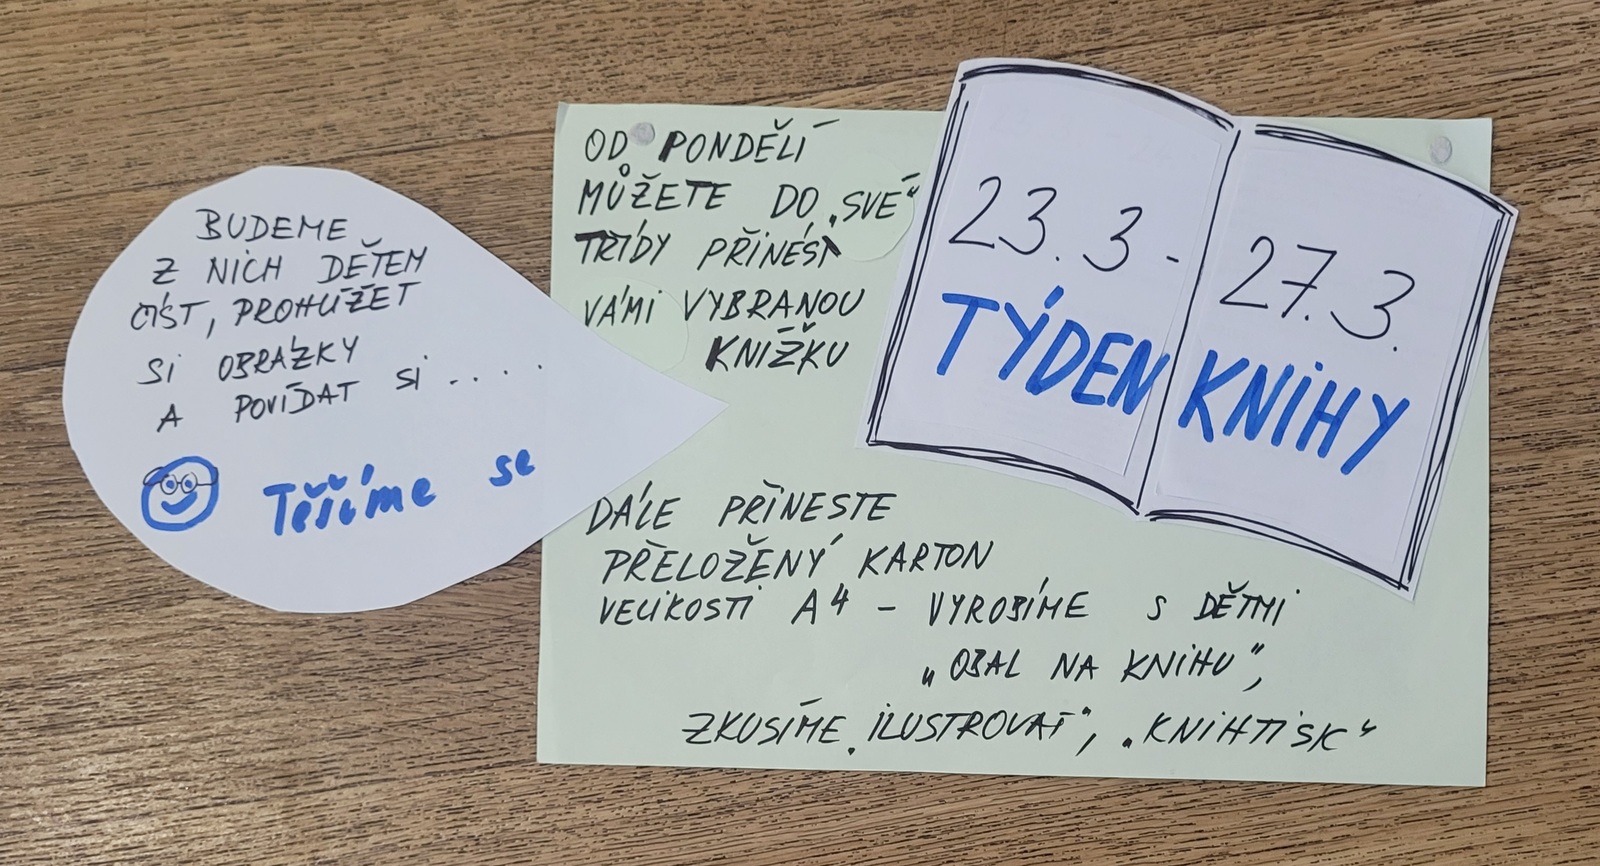 23. 3 - 27. 3.
TÝDEN KNIHY
OD PONDĚLÍ
MŮŽETE DO „SVÉ“
TŘÍDY PŘINÉST
VÁMI VYBRANOU
KNÍŽKU
BUDEME
Z NICH DĚTEM
ČÍST, PROHLÍŽET
SI OBRÁZKY
A POVÍDAT SI ....
Těšíme se
DÁLE PŘINESTE
PŘELOŽENÝ KARTON
VELIKOSTI A4 - VYROBÍME S DĚTMI
„OBAL NA KNIHU“,
ZKUSÍME „ILUSTROVAT“, „KNIHTISK“